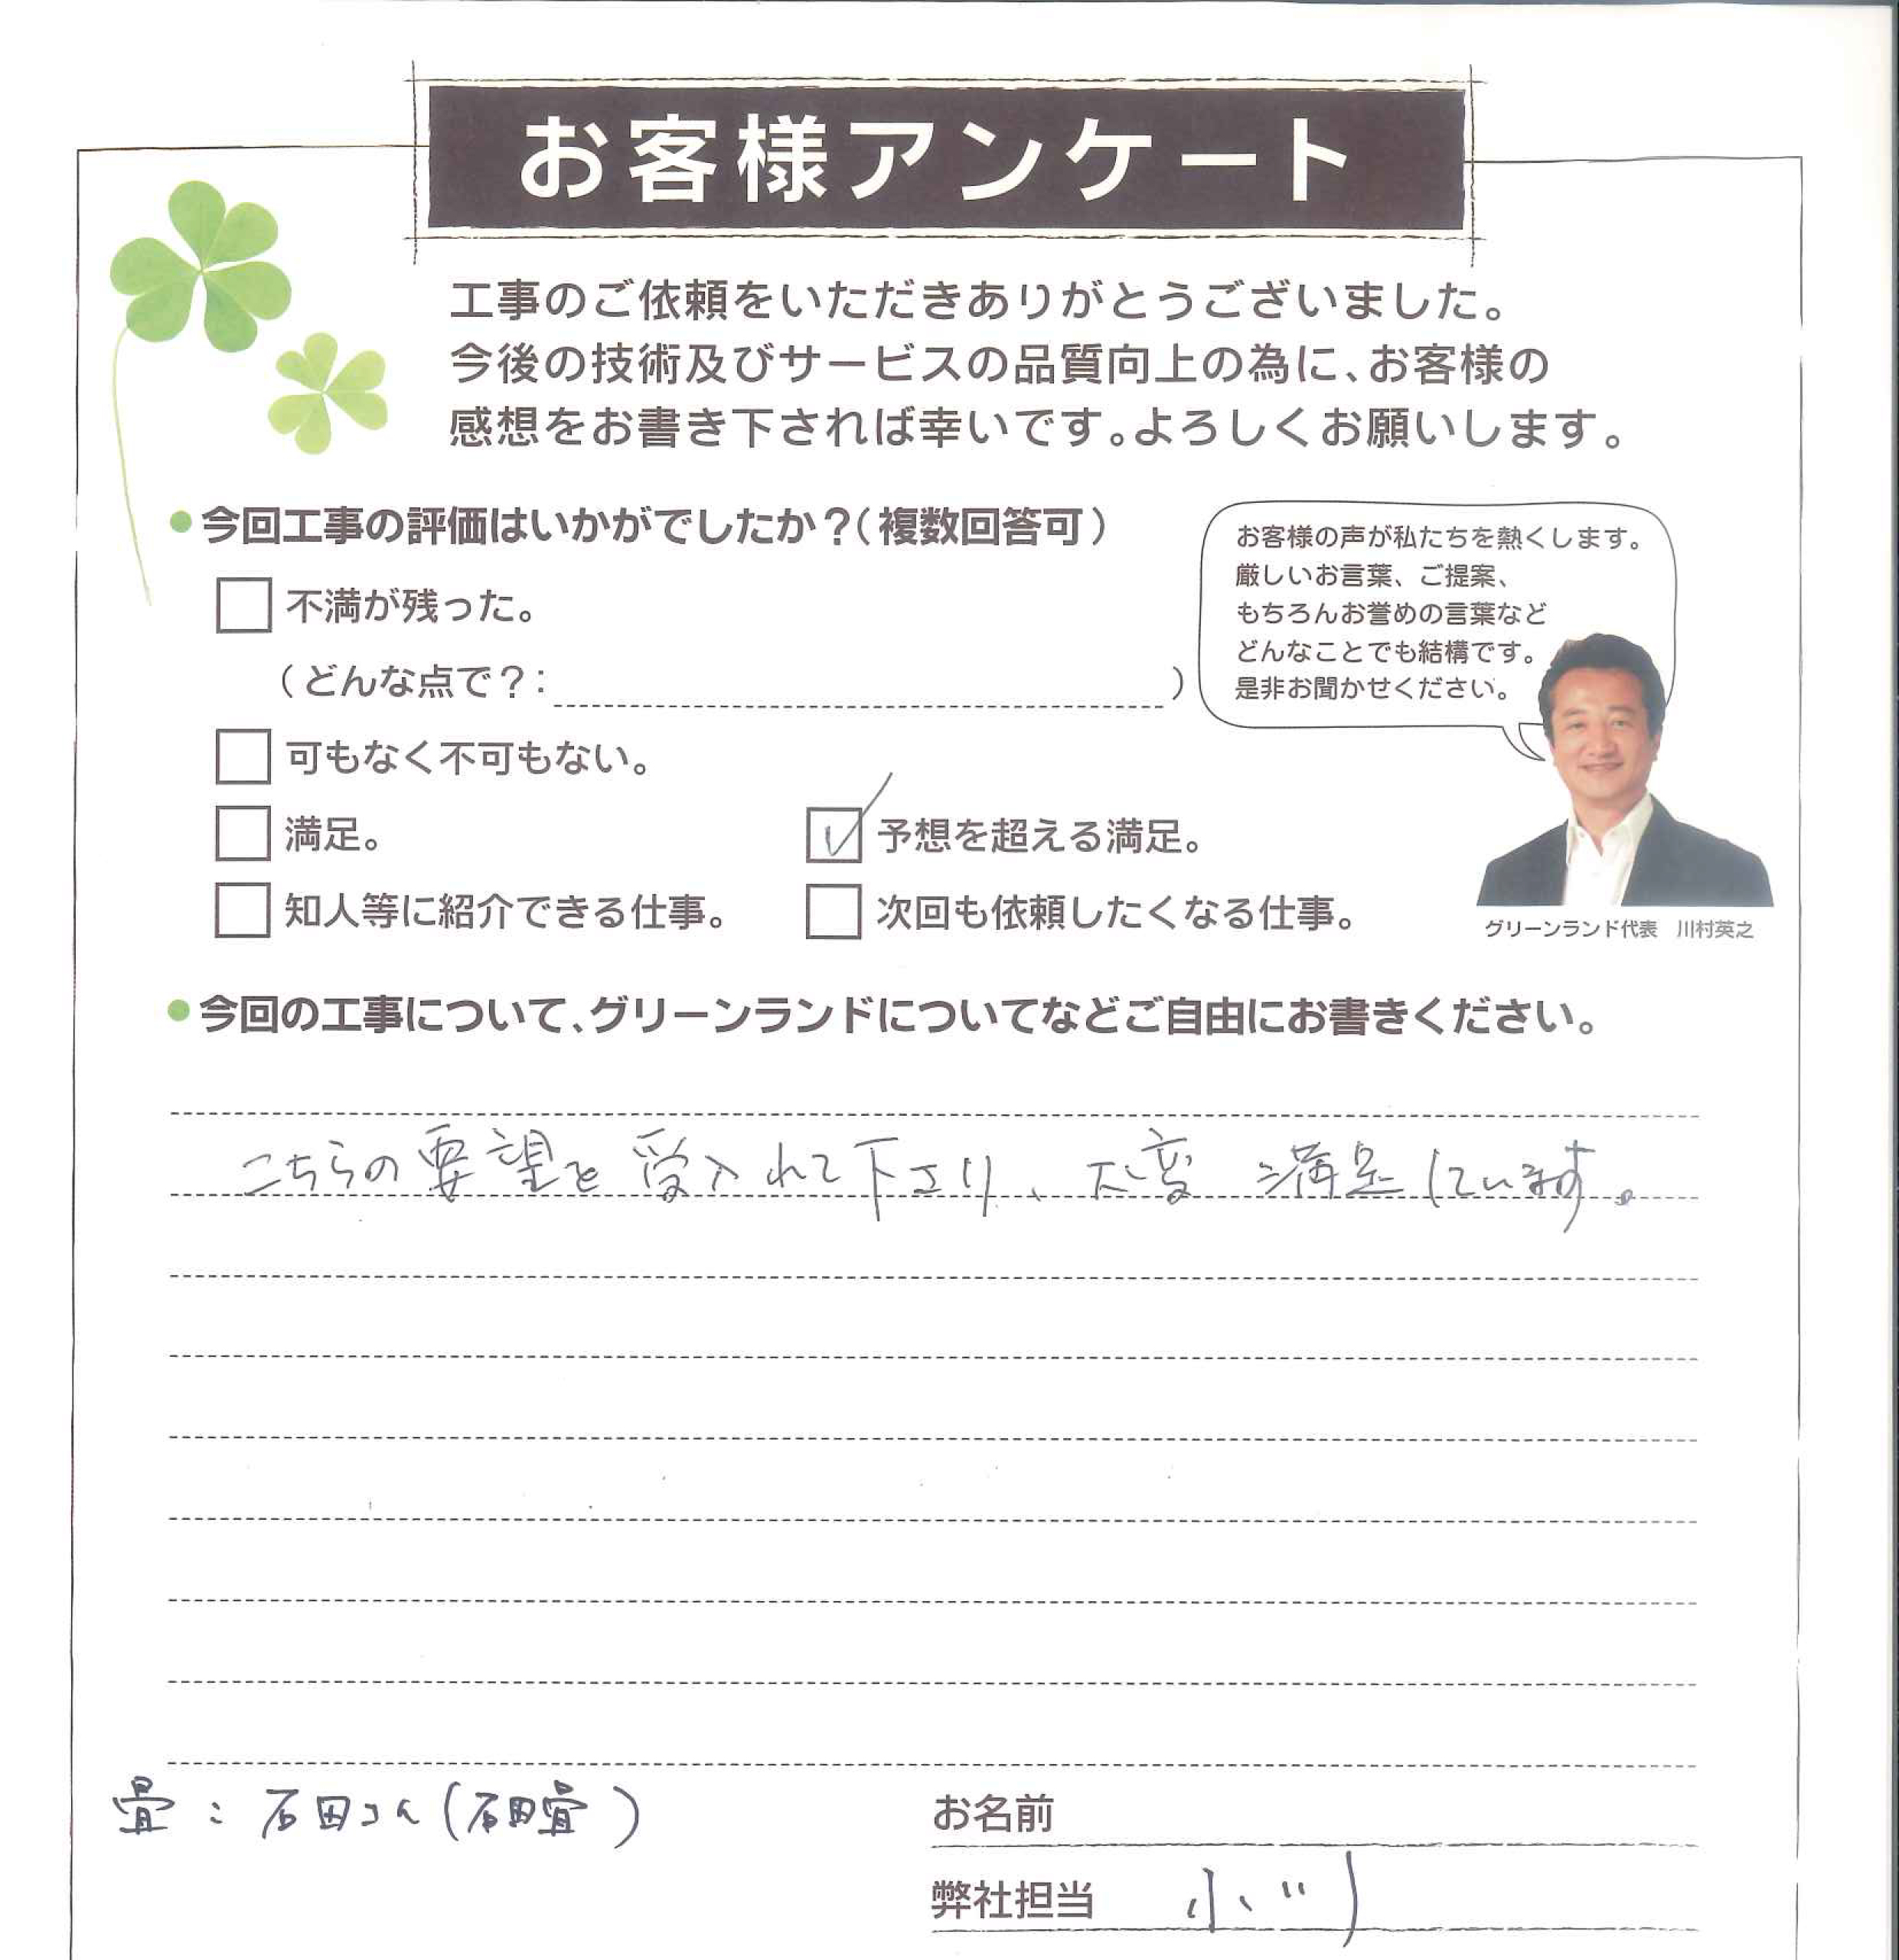 お客様アンケート
工事のご依頼をいただきありがとうございました。
今後の技術及びサービスの品質向上の為に、お客様の
感想をお書き下されば幸いです。よろしくお願いします。
●今回工事の評価はいかがでしたか?(複数回答可)
不満が残った。
(どんな点で?: )
可もなく不可もない。
満足。
予想を超える満足。
知人等に紹介できる仕事。
次回も依頼したくなる仕事。
お客様の声が私たちを熱くします。
厳しいお言葉、ご提案、
もちろんお誉めの言葉など
どんなことでも結構です。
是非お聞かせください。
グリーンランド代表 川村英之
●今回の工事について、グリーンランドについてなどご自由にお書きください。
こちらの要望を受入れて下さり、大変 満足しています。
畳:石田さん(石田畳)
お名前
弊社担当 小川